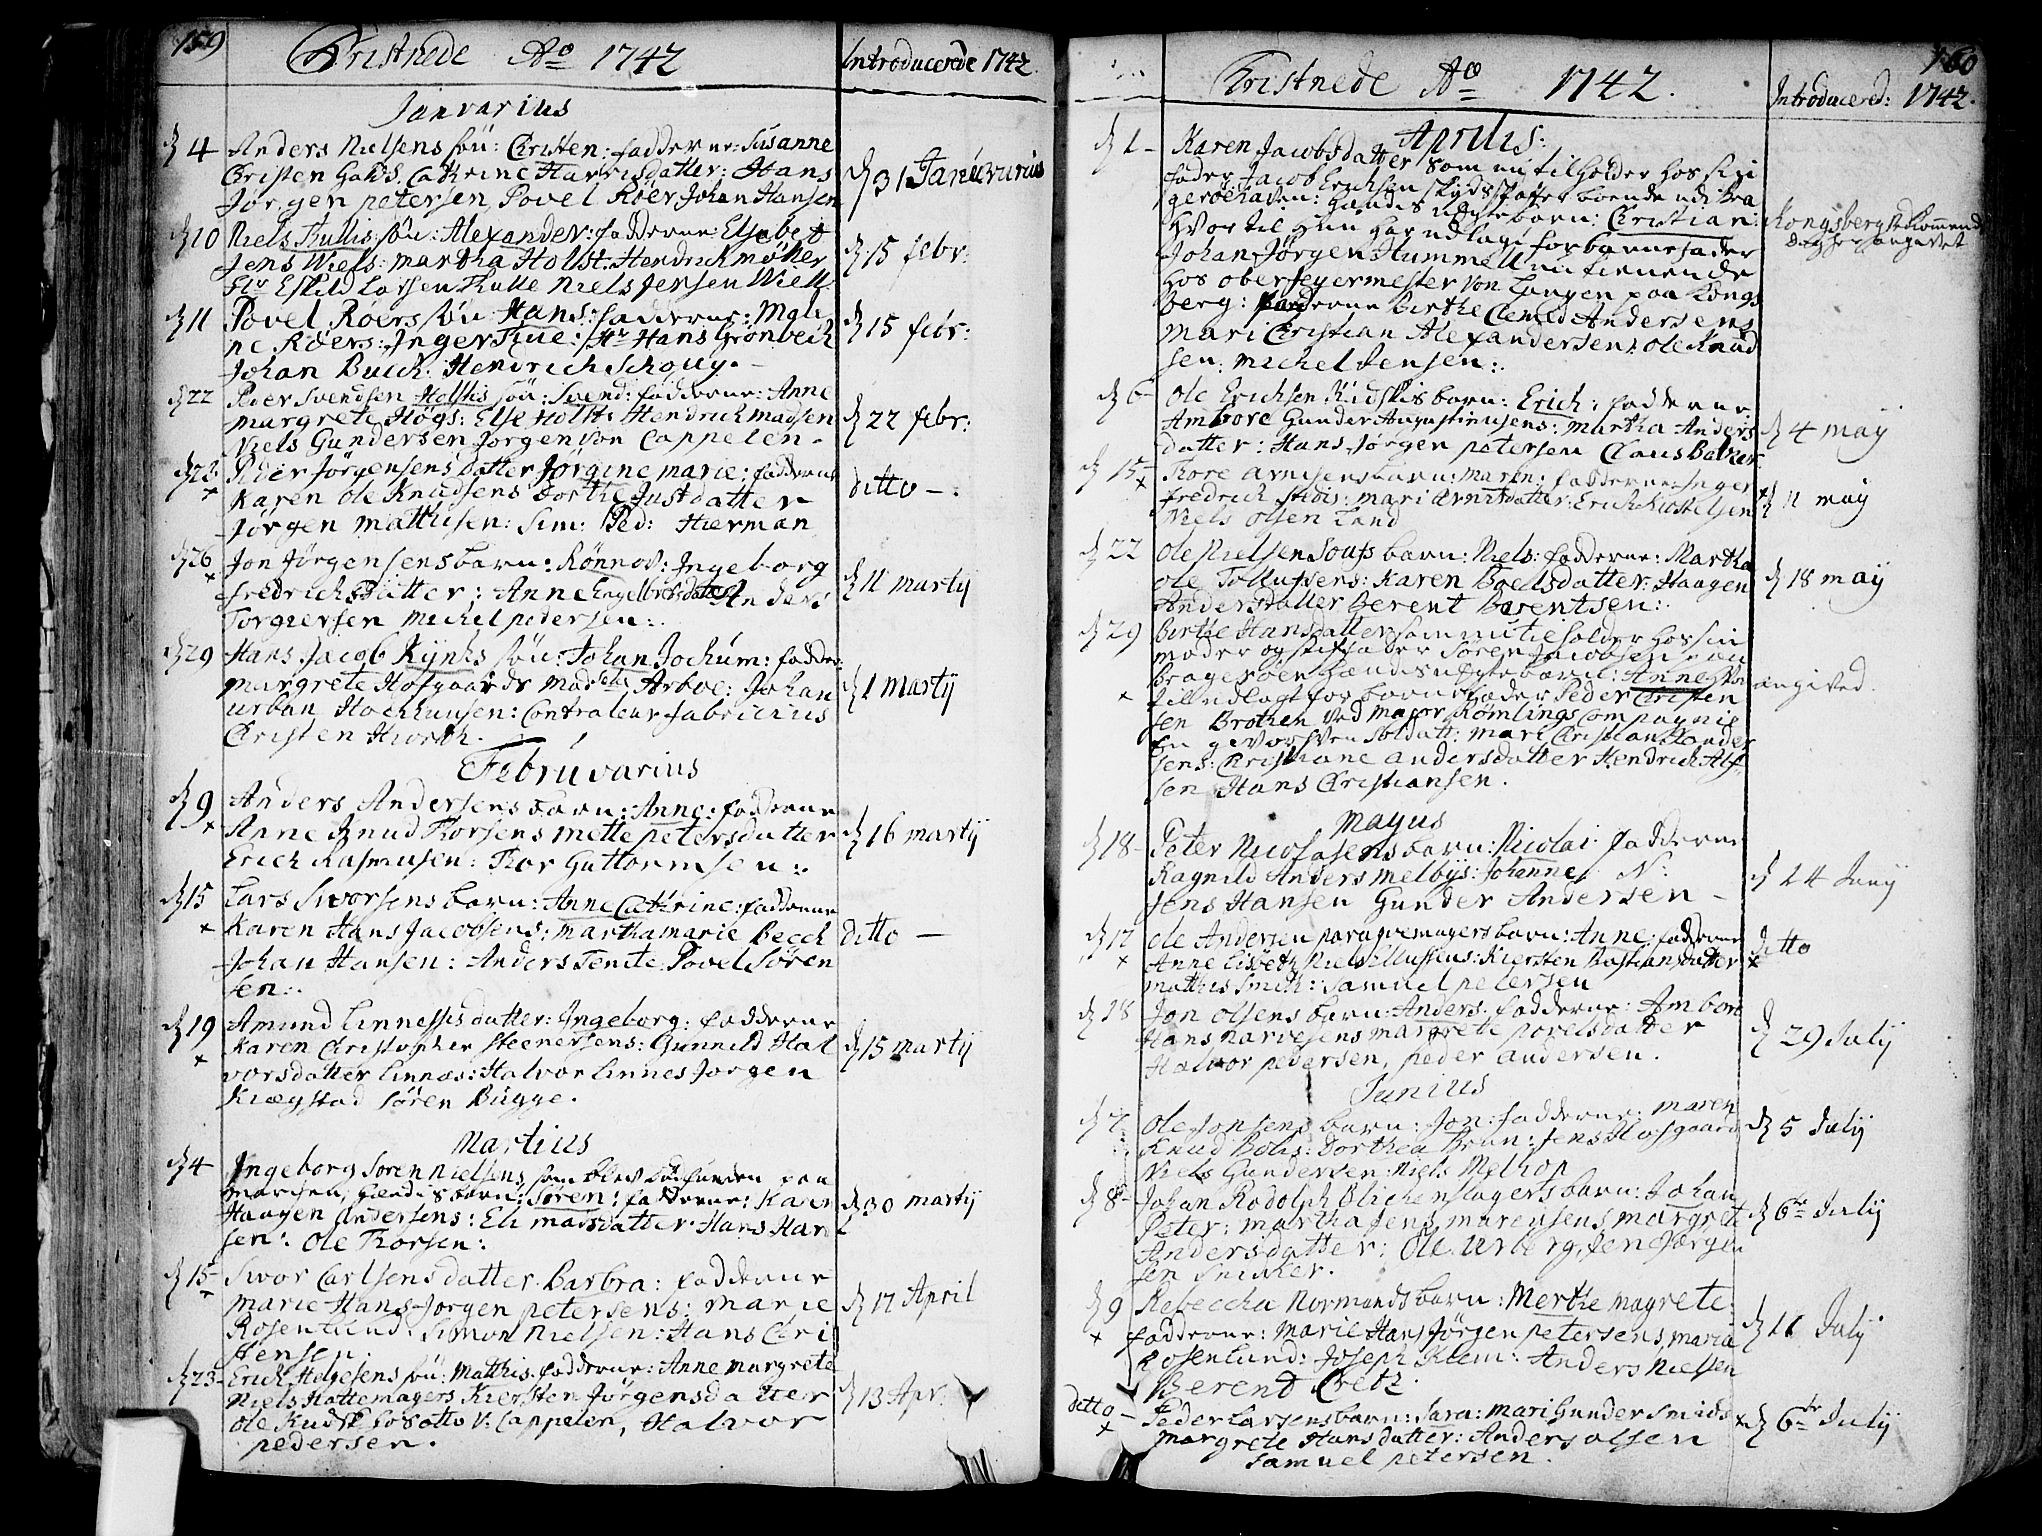 159
Christnede Ao 1742
Introducerede 1742.
Janvarius
d 4 Anders Nielsens søn: Christen: fadderne: Susanne
Christen Cathrine Harrisdatter: Hans
Jør,gen petersen, Povel Röer Johan Hansen
d 31 Januvarius
d 10 Niels Thullis søn: Alexander: fadderne: Elsebet
Jens Wiels: martha Holst. Hendrich möller
Eskild Larsen Thulle Niels Jensen Wiell.
d 15 febr:
d 11 Povel Röers søn Hans: fadderne: Mali
ne Röers: Inger Hr Hans Grönbech
Johan Buch: Hendrich Schouy.
d 15 febr:
d 22 Peder Svendsen Holstis søn: Svend: fadderne: Anne
margrete Högs: Else Holst: Hendrich madsen
Niels Gundersen Jørgen von Cappelen.
d 22 febr:
d 23 Peder Jörgensens datter Jörgine marie: fadderne
Karen Ole Knudsens Dorthe Justdatter
Jörgen matthisen: Sim: Ped: Hierman
ditto
d 26 Jon Jörgensens barn: Rönnov: Ingeborg
fredrichsdatter: Anne Engelbretsdatter Anders
Torgiersen michel pedersen:.
d 11 martij
d 29 Hans Jacob Kÿnhs søn: Johan Jochum: fadder:
margrete Hofgaards Arboe: Johan
urban Stochhunsen: Contraleur fabricius
Christen Hiorth.
d 1 martij
Februvarius
d 9 Anders Andersens barn: Anne: fadderne
Anne Knud Thorsens mette petersdatter
Erich Rasmusen: Thor Guttormsen:.
d 16 martij
d 15 Lars Sworsens barn: Anne Cathrine: fadderne
Karen Hans Jacobsens: martha marie Becch
Johan Hansen: Anders Povel Sören
sen:.
ditto
d 19 Amund Linnessis datter: Ingeborg: fadderne
Karen Christopher steenersens: Gunnild Hal
vorsdatter Linnæs: Halvor Linnes Jorgen
Kiægstad Sören Bugge.
d 15 martij
Martius
d 4 Ingeborg Sören Nielsens, som blev paa
marken, hændis barn: Sören: fadderne: Karen
Haagen Andersens: Eli madsdatter Hans Han
sen: Ole Thorsen:.
d 30 martij
d 15 Swor Carlsens datter Barbra: fadderne
marie Hans Jorgen petersens: marie
Rosenlund: Simon Nielsen: Hans Chri
stensen.
d 17 April
d 23 Erich Helgesens søn: Matthis: fadderne: Anne margrete
Niels Hattemagers Kiersten Jörgensdatter
ole Kudsk hos otto v: Cappelen, Halvor
pedersen.
d 13 Apr:
160
Christnede Ao 1742.
Introducered: 1742.
Aprilis:
d 1 Karen Jacobsdatter som nu tilholder hos sin
fader Jacob Erichsen skydsskaffer boende udi Bra
geröehaven: hændis uegte barn: Christian:
hvor til hun har udlagt for barnefader
Johan Jörgen Hummell nu tienende
hos oberfeyermester von Langen paa Kongs
berg: fadderne Birthe Clemed Andersens
mari Christian Alexandersens ole Knud
sen: michel Jensen:.
Kongsberg
angivet
d 6 Ole Erichsen Kudskis barn: Erich: fadderne
Ambore Gunder Augustinusens: martha Anders
datter: Hans Jørgen petersen Claus Balcher
d 4 may
d 15 Thore Arnesens barn: maren: fadderne: Inger
fredrich Stidis: mari Arnesdatter: Erich Kiostelsen
Niels olsen Land
d 11 maij
d 22 Ole Nielsen barn: Niels: fadderne: Martha
ole Tollufsens: Karen Poelsdatter: Haagen
Andersdatter Berent Berentsen:.
d 18 maij
d 29 Birthe Hansdatter som nu tilholder hos sin
moder og stiffader Sören Jacobsen
bragerøen hændis uegte barn: Anne
till udlagt for barne fader Peder Christen
sen Brothen ved major Römlings Compagnie
en givorfven soldatt: mari Christian Xander
sens: Christiane andersdatter Hendrich Alf
sen Hans Christiansen.
angived.
Mayus
d 18 Peter Nicolasens barn: Nicolai: fadderne
Ragnild Anders melbys: Johanne N:
Jens Hansen Gunder Andersen
d 24 Junij
d 17 ole Andersen barn: Anne: fadderne
Anne Lisbeth Niels Ellufsens: Kiersten Bastiansdatter
matthis Smith: Samuel petersen
ditto
d 18 Jon olsens barn: Anders. fadderne: Ambore
Hans narvesens margrete povelsdatter
Halvor pedersen, peder andersen.
d 29 Julij
Junius
d 7 Ole Jonsens barn: Jon: fadderne: maren
Knud Bolis: Dorthea Brun: Jens Hofgaard
Niels Gundersen: Niels Melhop
d 5 Julij
d 8 Johan Rodolph Blichenslagers barn: Johan
Peter: martha Jens marensens, margrete
Andersdatter: Ole Urberg, Jens Jörgen
sen Snikker.
d 6te Julij
d 9 Rebeccha Normands barn: Merthe magrete:
fadderne: Marie Hans Jörgen petersens, maria
Rosenlund: Joseph Klem: Anders Nielsen
Berent Cretz.
d 11 Julij
ditto Peder Larsens barn: Sara: mari Gunder Smids
margrete Hansdatter: Anders olsen
Samuel petersen.
d 6te Julij